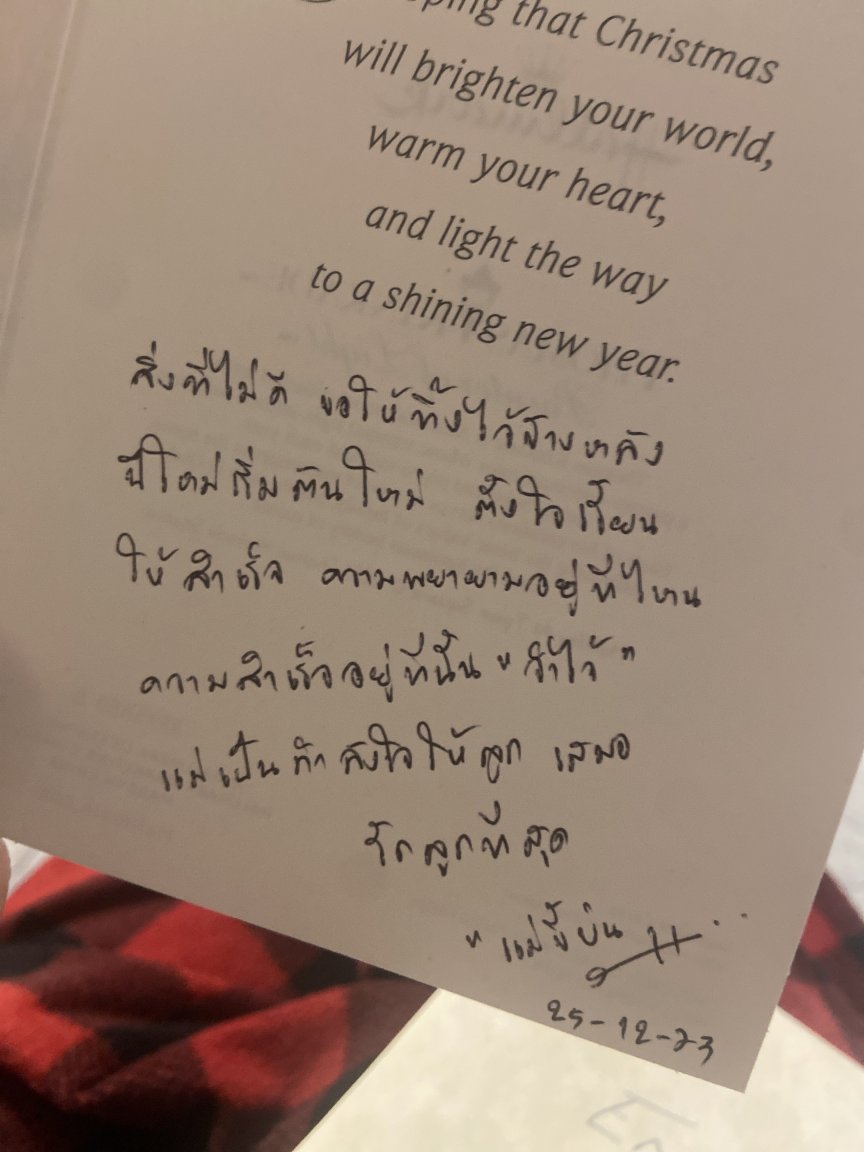 that Christmas
will brighten your world,
warm your heart,
and light the way
to a shining new year.
สิ่งที่ไม่ดี ขอให้ทิ้งไว้ข้างหลัง
ปีใหม่เริ่มต้นใหม่ ตั้งใจเรียน
ให้สำเร็จ ความพยายามอยู่ที่ไหน
ความสำเร็จอยู่ที่นั้น "จำไว้"
แม่เป็นกำลังใจให้ลูก เสมอ
รักลูกที่สุด
"แม่
25-12-23